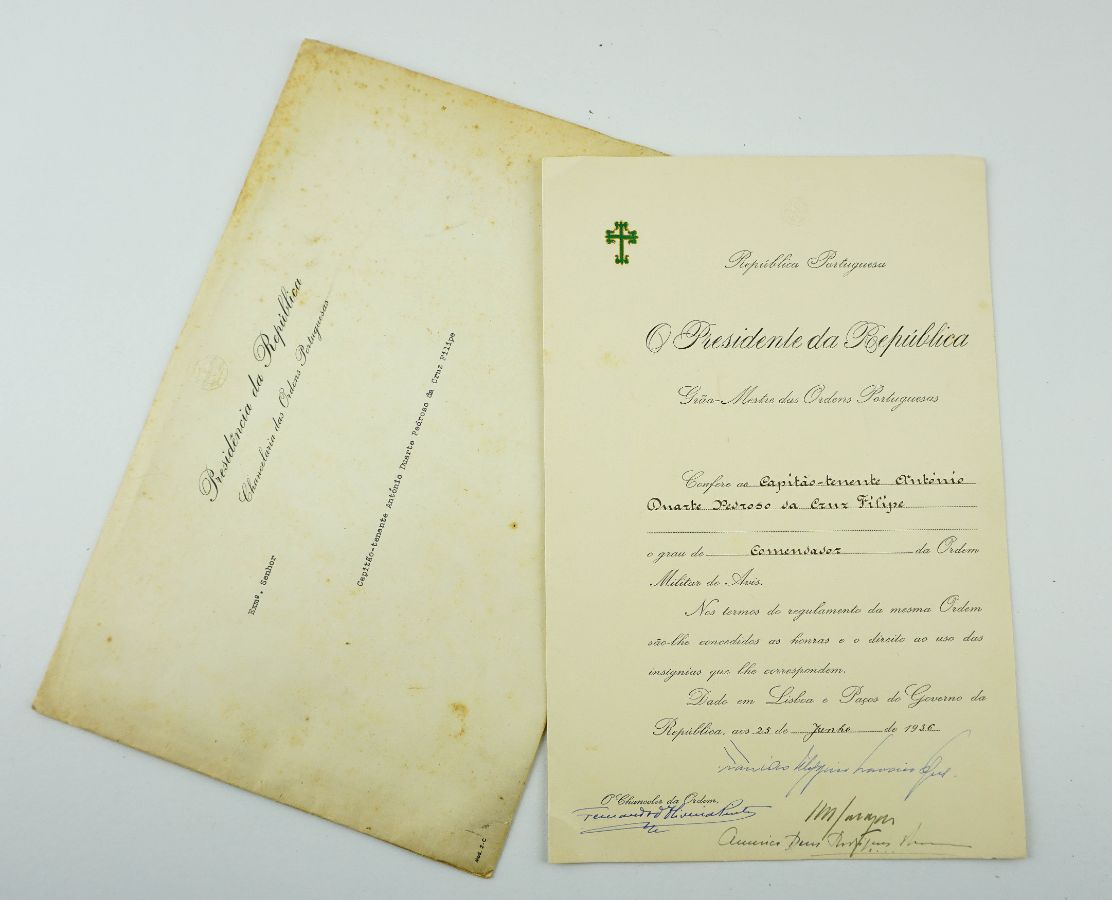 Presidência da República
Chancelaria das Ordens Portuguesas
Exmº. Senhor
Capitão-tenente António Duarte Pedroso da Cruz Filipe
Mod. 2-C
República Portuguesa
O Presidente da República
Grão-Mestre das Ordens Portuguesas
Confere ao Capitão-tenente António
Duarte Pedroso da Cruz Filipe
o grau de Comendador da Ordem
Militar de Avis.
Nos termos do regulamento da mesma Ordem
são-lhe concedidos as honras e o direito ao uso das
insígnias que lhe correspondem.
Dado em Lisboa e Paços do Governo da
República, aos 25 de Junho de 1956
O Chanceler da Ordem,
Américo Deus Rodrigues